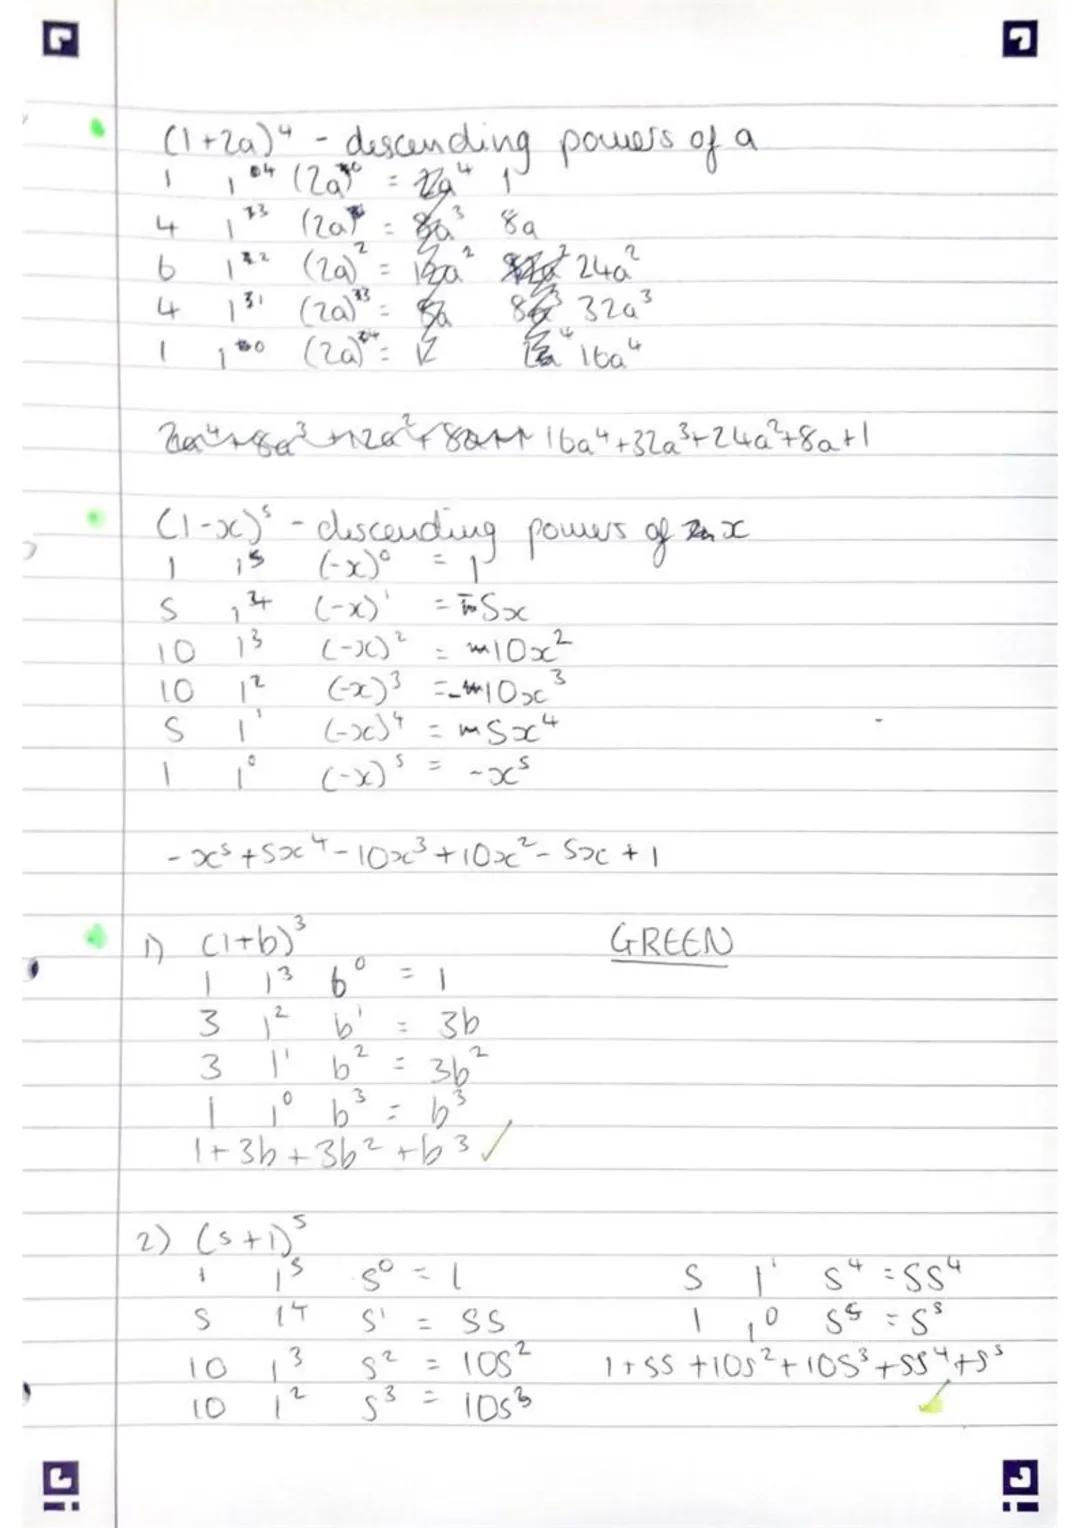 (1+2a)⁴ - descending powers of a
1 1⁴ (2a)⁰ = 1
4 1³ (2a) = 8a
6 1² (2a)² = 24a²
4 1¹ (2a)³ = 32a³
1 1⁰ (2a)⁴ = 16a⁴
16a⁴+32a³+24a²+8a+1
(1-x)⁵ - descending powers of x
1 1⁵ (-x)⁰ = 1
5 1⁴ (-x)¹ = -5x
10 1³ (-x)² = 10x²
10 1² (-x)³ = -10x³
5 1¹ (-x)⁴ = 5x⁴
1 1⁰ (-x)⁵ = -x⁵
-x⁵+5x⁴-10x³+10x²-5x+1
1) (1+b)³ GREEN
1 1³ b⁰ = 1
3 1² b¹ = 3b
3 1¹ b² = 3b²
1 1⁰ b³ = b³
1+3b+3b²+b³ ✓
2) (s+1)⁵
1 1⁵ s⁰ = 1 5 1¹ s⁴ = 5s⁴
5 1⁴ s¹ = 5s 1 1⁰ s⁵ = s⁵
10 1³ s² = 10s² 1+5s+10s²+10s³+5s⁴+s⁵
10 1² s³ = 10s³ ✓